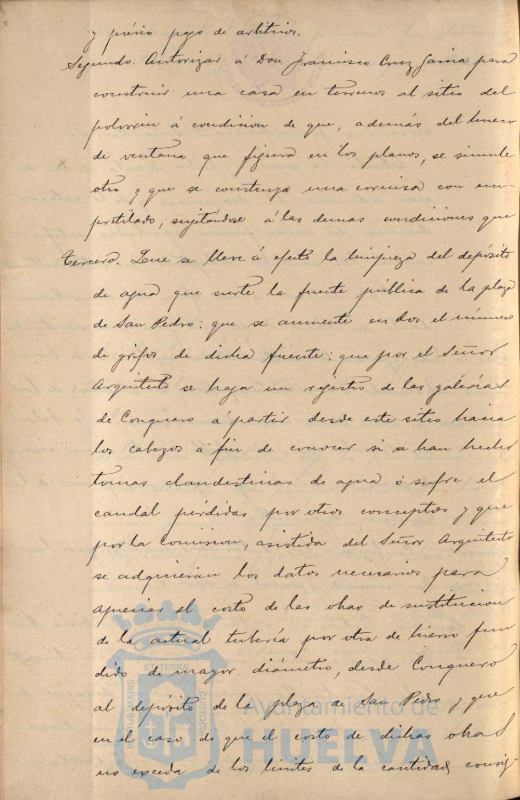 y prévio pago de arbitrios.
Segundo. Autorizar á Don Francisco Cruz García para
construir una casa en terrenos al sitio del
polvorin á condicion de que, además del hueco
de ventana que figura en los planos, se simule
otro y que se construya una cornisa con em-
pretilado, sujetándose á las demas condiciones que
Tercero. Que se lleve á efecto la limpieza del depósito
de agua que surte la fuente pública de la plaza
de San Pedro: que se aumente en dos el número
de grifos de dicha fuente: que por el Señor
Arquitecto se haga un registro de las galerías
de Conquero á partir desde este sitio hacia
los cabezos á fin de conocer si se han hecho
tomas clandestinas de agua ó sufre el
caudal pérdidas por otros conceptos y que
por la comision, asistida del Señor Arquitecto
se adquieran los datos necesarios para
apreciar el costo de las obras de sustitucion
de la actual tubería por otra de hierro fun
dido de mayor diámetro, desde Conquero
al depósito de la plaza de San Pedro y que
en el caso de que el costo de dichas obras
no exceda de los límites de la cantidad consig-
Ayuntamiento de
HUELVA